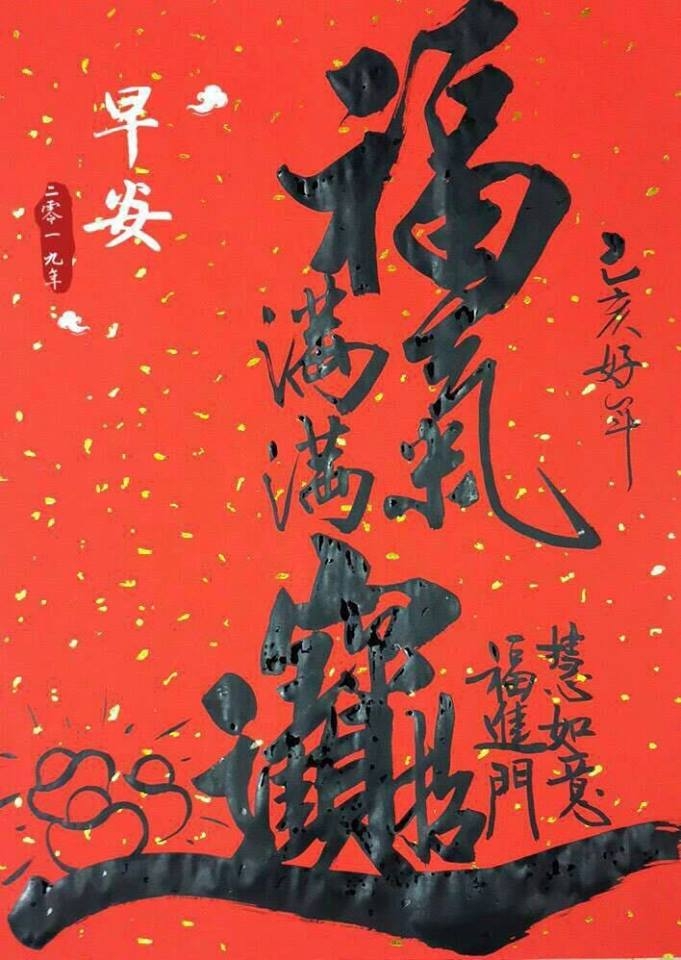 己亥好年
福氣
滿滿
招財進寶
慧如意
福進門
早安
二零一九年